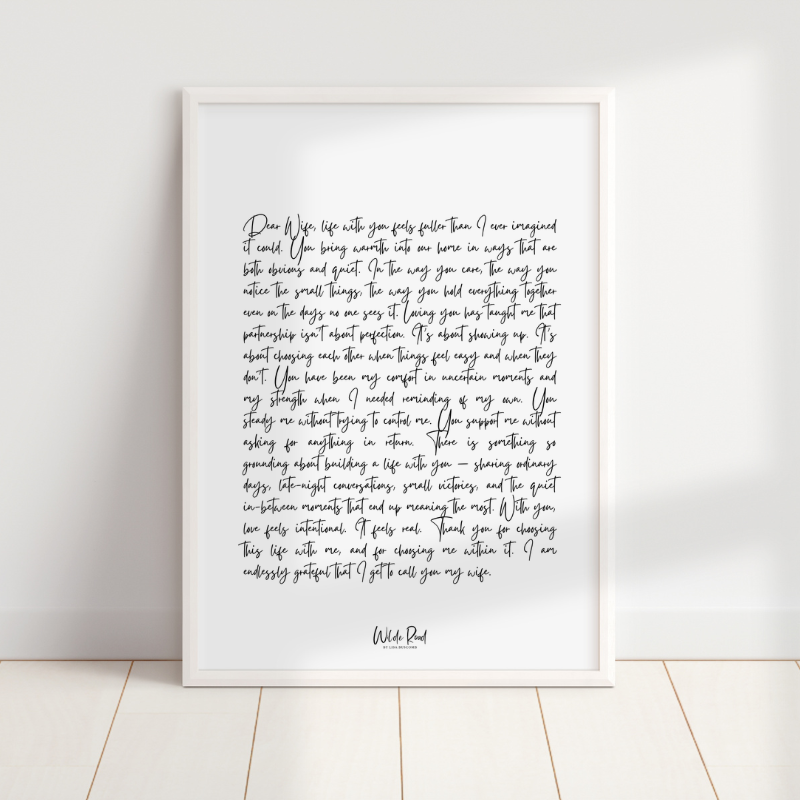 Dear Wife, life with you feels fuller than I ever imagined
it could. You bring warmth into our home in ways that are
both obvious and quiet. In the way you care, the way you
notice the small things, the way you hold everything together
even on the days no one sees it. Loving you has taught me that
partnership isn't about perfection. It's about showing up. It's
about choosing each other when things feel easy and when they
don't. You have been my comfort in uncertain moments and
my strength when I needed reminding of my own. You
steady me without trying to control me. You support me without
asking for anything in return. There is something so
grounding about building a life with you — sharing ordinary
days, late-night conversations, small victories, and the quiet
in-between moments that end up meaning the most. With you,
love feels intentional. It feels real. Thank you for choosing
this life with me, and for choosing me within it. I am
endlessly grateful that I get to call you my wife.
Wilde Road
BY LISA